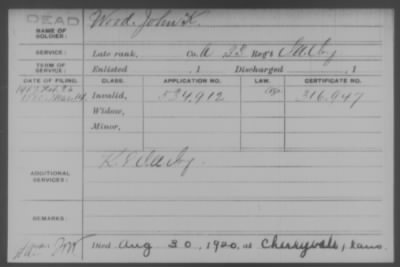 DEAD
NAME OF SOLDIER: Wood, John K.
SERVICE: Late rank, Co. A 23 Reg't
TERM OF SERVICE: Enlisted , 1 Discharged , 1
DATE OF FILING. CLASS. APPLICATION NO. LAW. CERTIFICATE NO.
Invalid, 534,912 316,947
Widow,
Minor,
ADDITIONAL SERVICES:
REMARKS:
Died Aug 30, 1920, at Cherryvale, Kans.